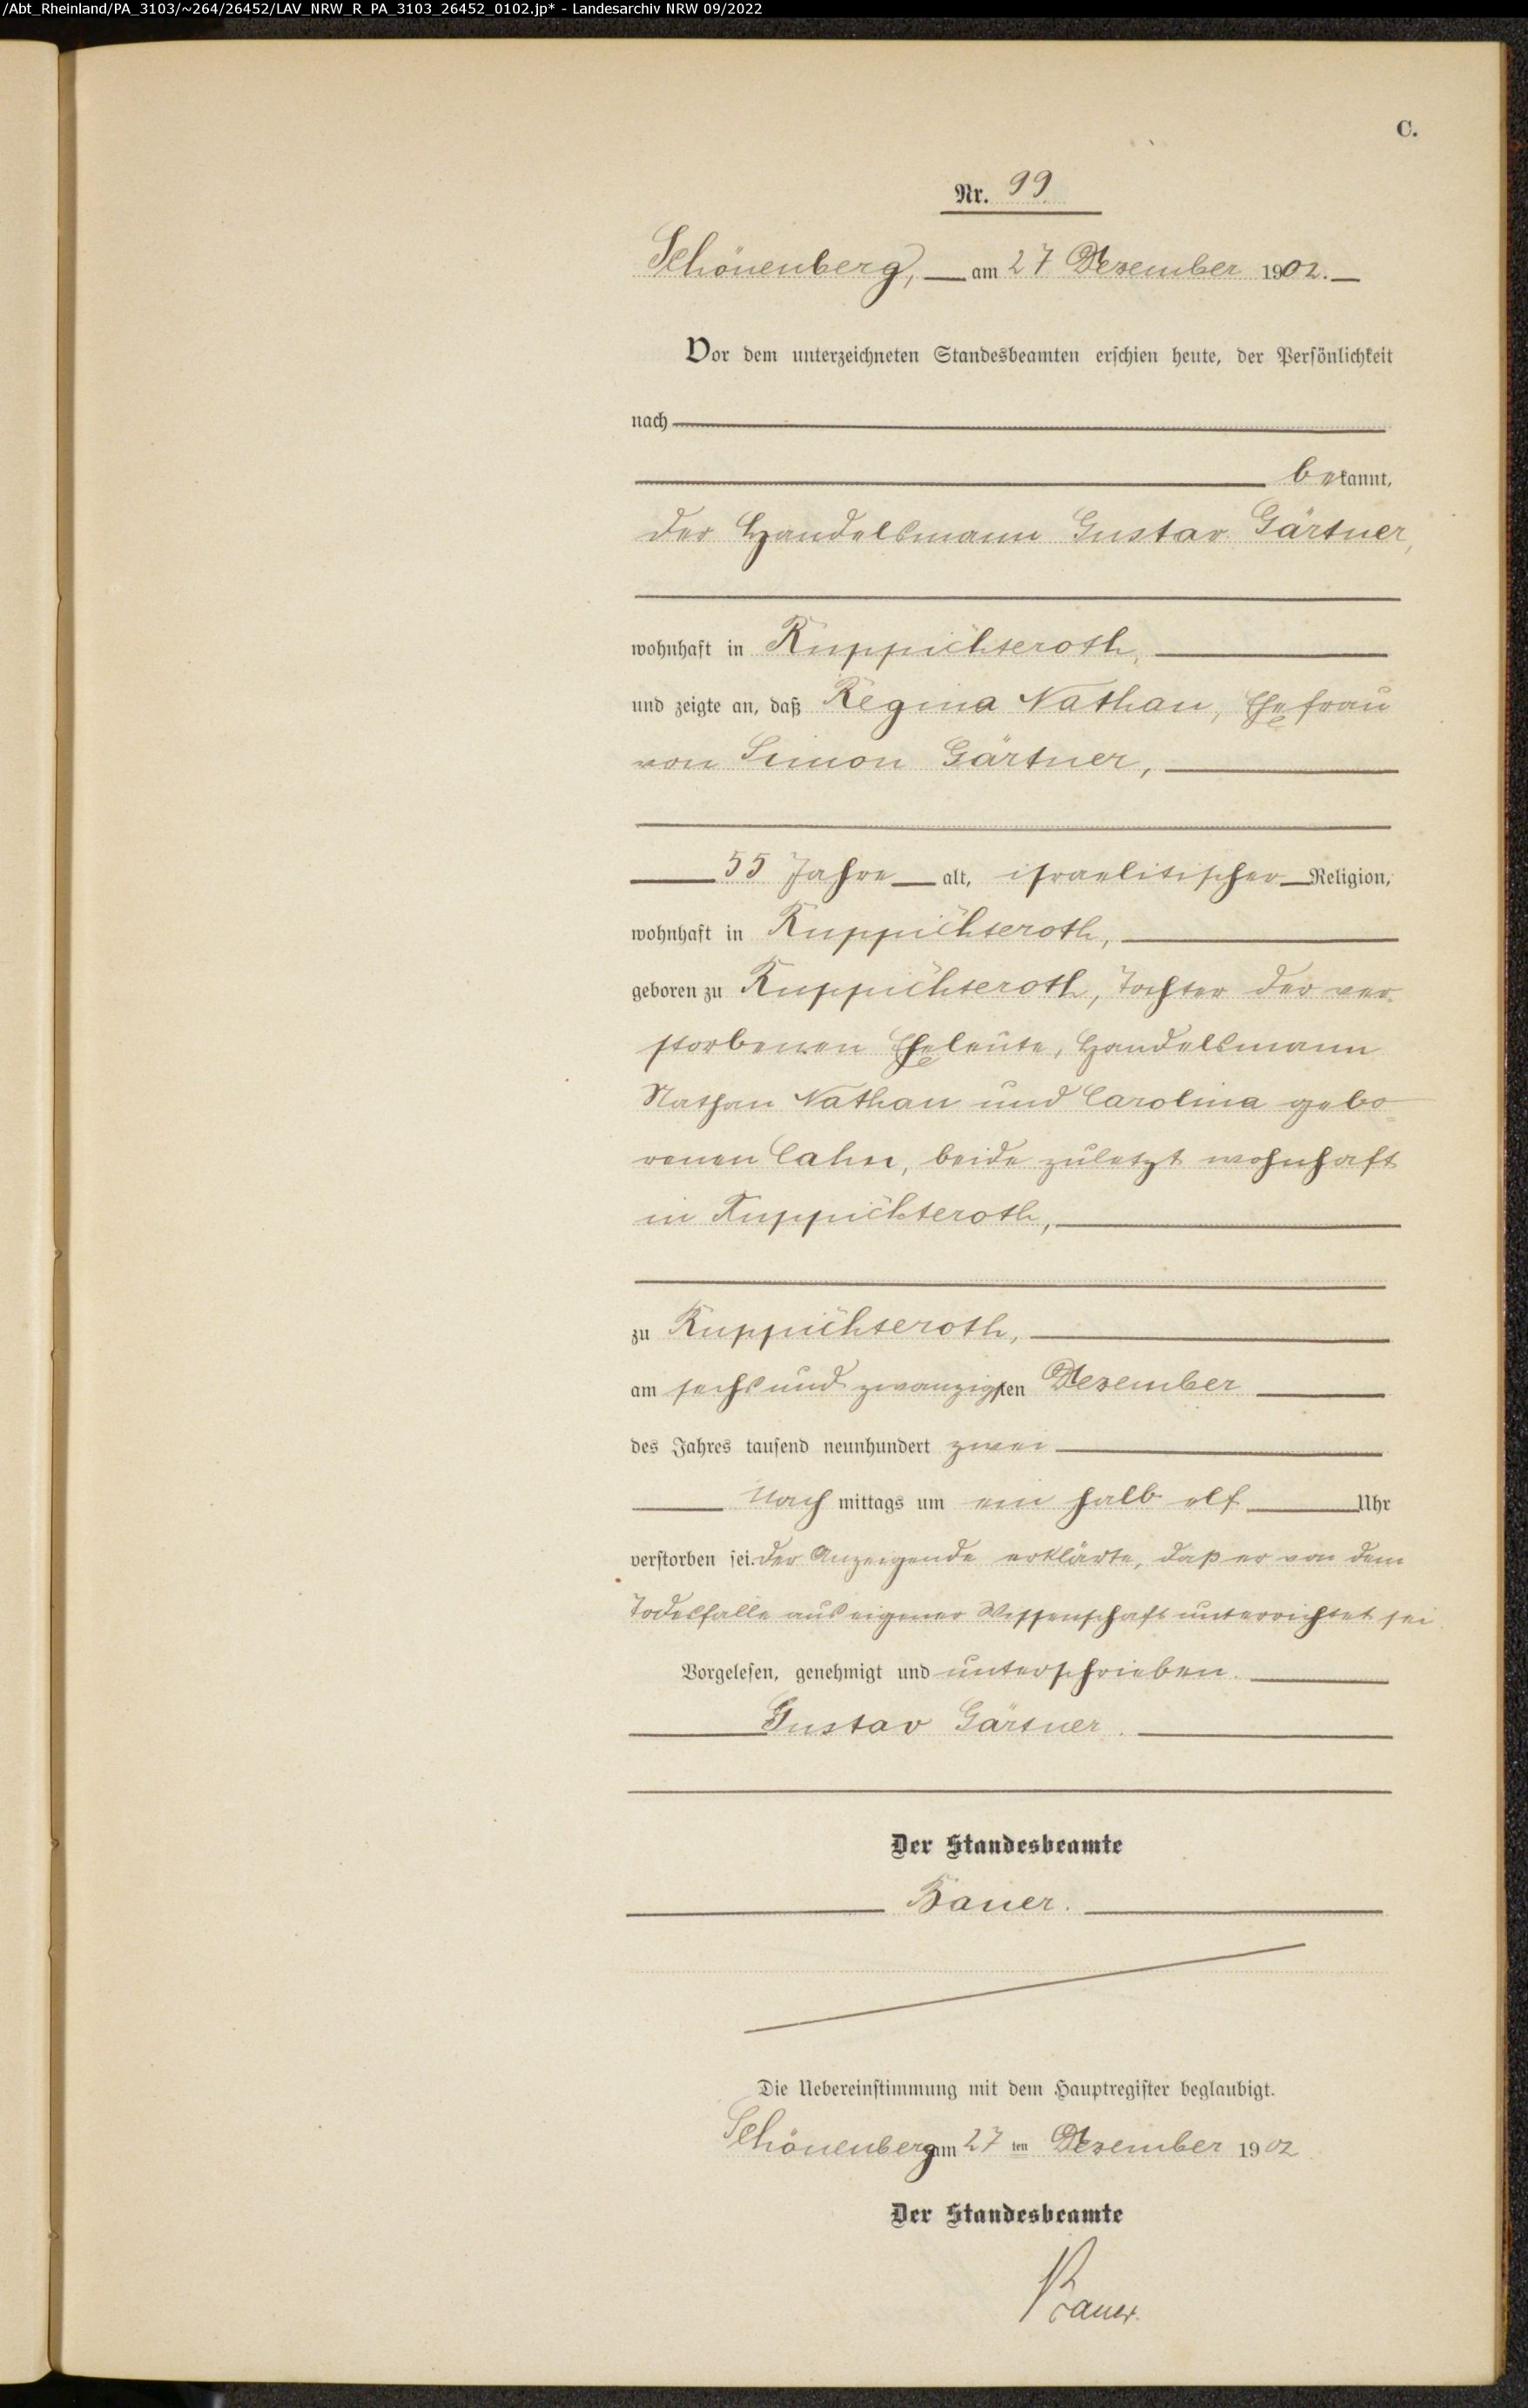 /Abt_Rheinland/PA_3103/~264/26452/LAV_NRW_R_PA_3103_26452_0102.jp* - Landesarchiv NRW 09/2022
C.
Nr. 99
Schönenberg, am 27 Dezember 1902.
Vor dem unterzeichneten Standesbeamten erschien heute, der Persönlichkeit
nach
bekannt,
der Handelsmann Gustav Gärtner,
wohnhaft in Ruppichteroth,
und zeigte an, daß Regina Nathan, Ehefrau
von Simon Gärtner,
55 Jahre alt, israelitischer Religion,
wohnhaft in Ruppichteroth,
geboren zu Ruppichteroth, Tochter der ver-
storbenen Eheleute, Handelsmann
Nathan Nathan und Carolina gebo-
renen Cahn, beide zuletzt wohnhaft
in Ruppichteroth,
zu Ruppichteroth,
am sechs und zwanzigsten Dezember
des Jahres tausend neunhundert zwei
Nach mittags um ein halb elf Uhr
verstorben sei. Der Anzeigende erklärte, daß er von dem
Todesfalle aus eigener Wissenschaft unterrichtet sei.
Vorgelesen, genehmigt und unterschrieben.
Gustav Gärtner.
Der Standesbeamte
Bauer.
Die Uebereinstimmung mit dem Hauptregister beglaubigt.
Schönenberg am 27 ten Dezember 1902
Der Standesbeamte
Bauer.